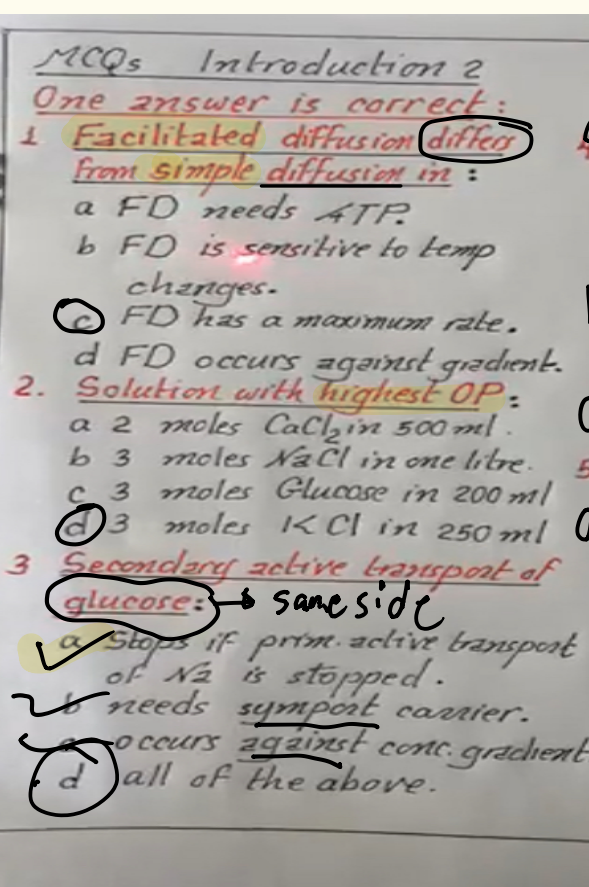 MCQs Introduction 2
One answer is correct:
1 Facilitated diffusion differs
from simple diffusion in :
a FD needs ATP.
b FD is sensitive to temp
changes.
c FD has a maximum rate.
d FD occurs against gradient.
2. Solution with highest OP:
a 2 moles CaCl2 in 500 ml.
b 3 moles NaCl in one litre.
c 3 moles Glucose in 200 ml
d 3 moles KCl in 250 ml
3 Secondary active transport of
glucose: → same side
a Stops if prim. active transport
of Na is stopped.
b needs symport carrier.
c occurs against conc. gradient
d all of the above.